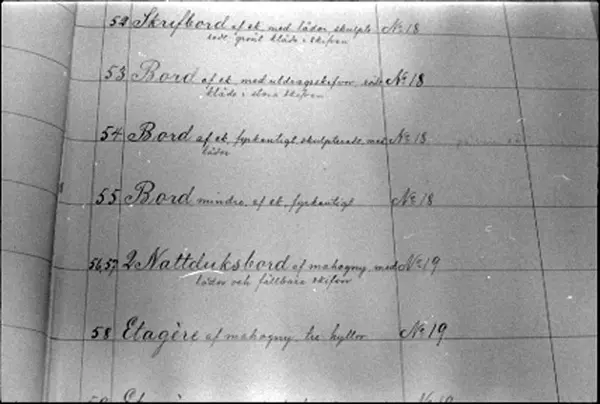 52 Skrifbord af ek med lådor, skulpte No 18
radt, grönt kläde i skifvan
53 Bord af ek med utdragsskifvor, rödt No 18
kläde i stora skifvan
54 Bord af ek, fyrkantigt, skulpteradt, med No 18
lådor
55 Bord mindre, af ek, fyrkantigt No 18
56,57 2 Nattduksbord af mahogny, med No 19
lådor och fällbara skifvor
58 Etagère af mahogny, tre hyllor No 19
59 No 19